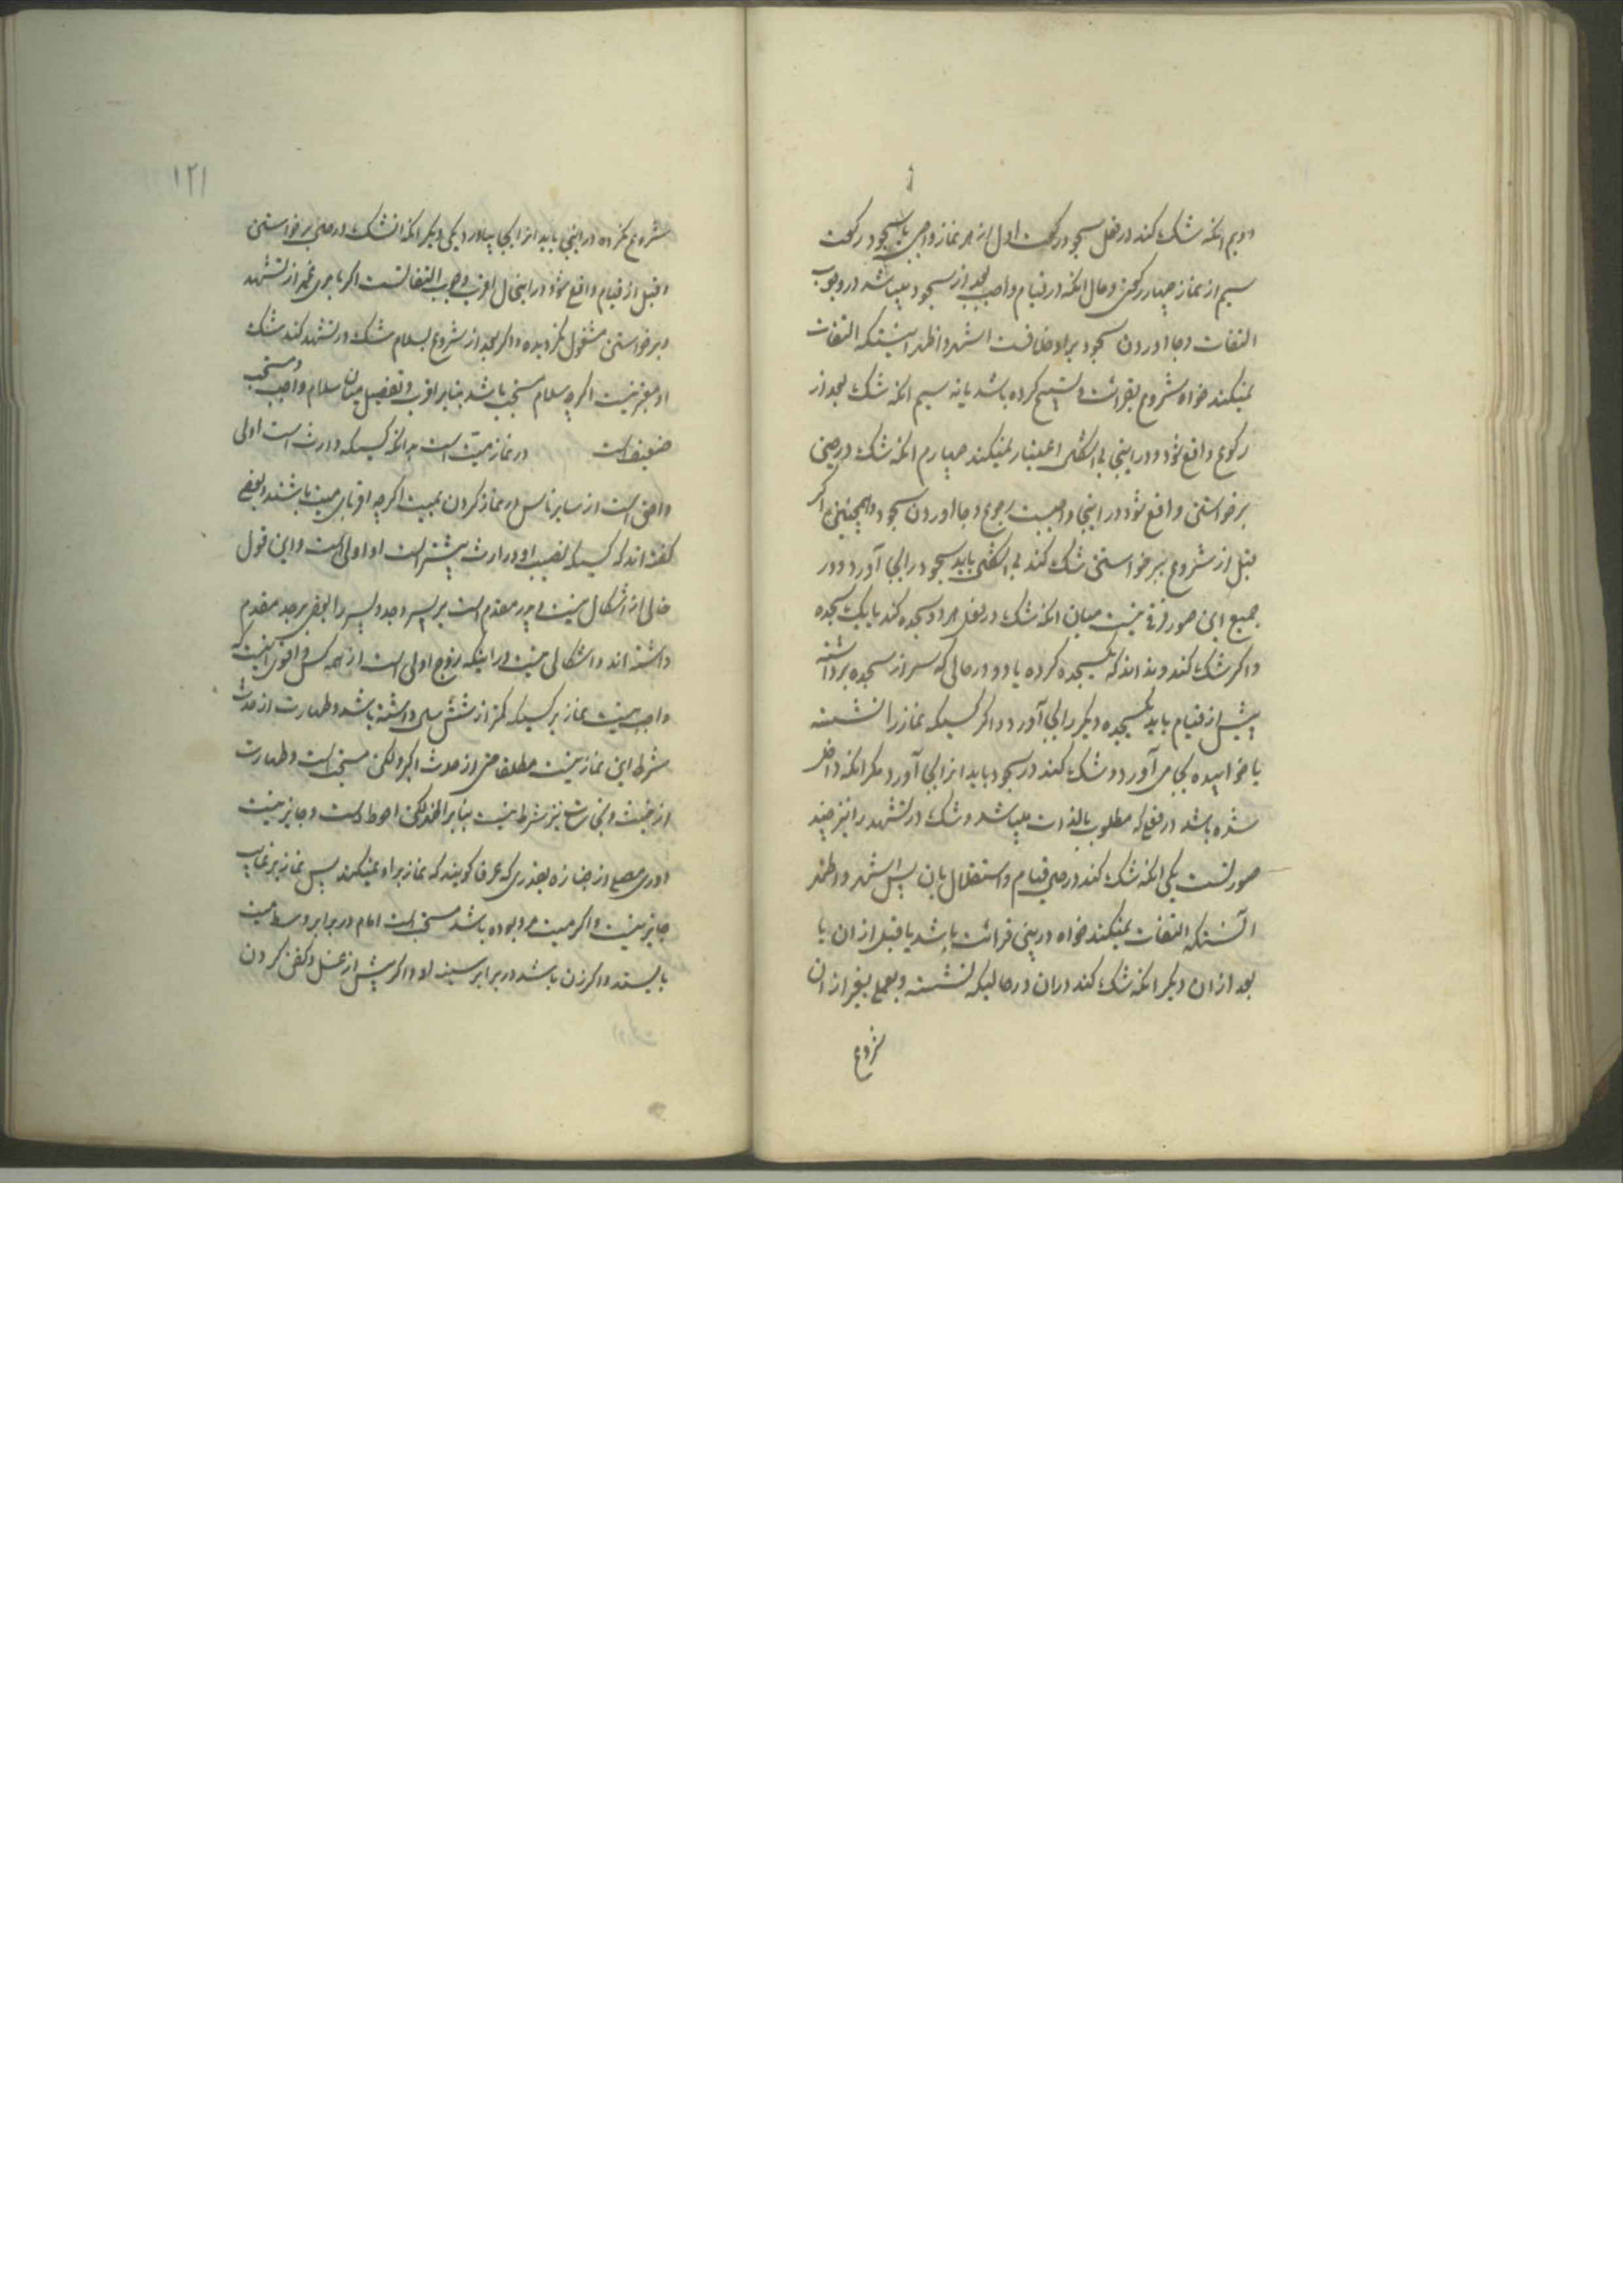 دویم انکه شک کند در فعل سجود رکعت اول از هر نماز واجبی یا سجود رکعت
سیم از نماز چهار رکعتی و حال انکه در قیام واجب بعد از سجود میباشد در وجوب
التفات و بجا اوردن سجود بر او خلافست اشهر و اظهر اینستکه التفات
نمیکند خواه شروع بقرائت و تسبیح کرده باشد یا نه سیم انکه شک بعد از
رکوع واقع شود و در اینجا بی اشکال اعتبار نمیکند چهارم انکه شک در حین
برخواستن واقع شود در اینجا واجبست رجوع و بجا اوردن سجود و همچنین اگر
قبل از شروع ببرخواستن شک کند بی اشکال باید سجود را بجا آورد و در
جمیع این صور فرقی نیست میان انکه شک در فعل هر دو سجده کند یا یک سجده
و اگر شک کند و نداند که یکسجده کرده یا دو در حالی که سر از سجده برداشته
پیش از قیام باید یکسجده دیگر را بجا آورد و اگر کسیکه نماز را نشسته
یا خوابیده بجا می آورد و شک کند در سجود باید انرا بجا آورد مگر انکه داخل
شده باشد در فعلی که مطلوب بالذات میباشد و شک در تشهد را نیز چند
صورتست یکی انکه شک کند در حین قیام و استقلال بان پس اشهر و اظهر
آنستکه التفات نمیکند خواه در بین قرائت باشد یا قبل از ان یا
بعد از ان دیگر انکه شک کند در ان در حالیکه نشسته و بعملی بغیر از ان
شروع
۱۲۱
شروع نکرده در اینجا باید انرا بجا بیاورد یکی دیگر انکه انشک در حین برخواستن
و قبل از قیام واقع شود در اینحال اقرب وجوب التفاتست اگر بامری غیر از تشهد
و برخواستن مشغول نگردیده و اگر بعد از شروع بسلام شک در تشهد کند شک
او معتبر نیست اگرچه سلام مستحب باشد بنابر اقرب و تفصیل میان سلام واجب و مستحب
ضعیف است در نماز میت است بدانکه کسیکه وارث است اولی
و احق است از سایر ناس در نماز کردن بمیت اگرچه اقربای میت باشند و بعضی
گفته اند که کسیکه نصیب او در ارث بیشتر است او اولی است و این قول
خالی از اشکال نیست پدر مقدم است بر پسر و جد و پسر را بعضی بر جد مقدم
داشته اند و اشکالی نیست در اینکه زوج اولی است از همه کس و اقوی اینست که
واجب نیست نماز بر کسیکه کمتر از شش سال داشته باشد و طهارت از حدث
شرط این نماز نیست مطلقا حتی از حدث اکبر ولکن مستحب است و طهارت
از خبث و نجاست نیز شرط نیست بنابر اظهر لکن احوط است و جایز نیست
دوری مصلی از جنازه بقدری که عرفا گویند که نماز بر او نمیکند پس نماز بر غایب
جایز نیست و اگر میت مرد بوده باشد مستحب است امام در برابر وسط میت
بایستد و اگر زن باشد در برابر سینه او و اگر پیش از غسل و کفن کردن